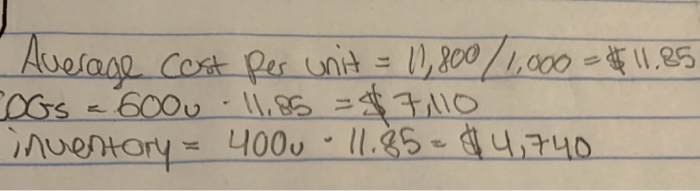 Average cost per unit = 11,800/1,000 = $11.85
COGs = 600u · 11.85 = $7,110
inventory = 400u · 11.85 = $4,740